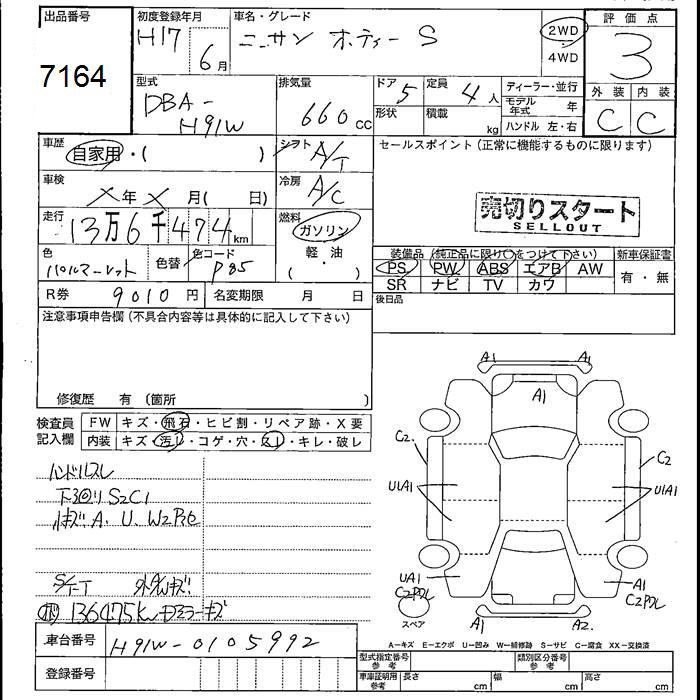 出品番号
7164
初度登録年月
H17 6月
車名・グレード
ニッサン オッティー S
2WD
4WD
評価点
3
外装 内装
C C
型式
DBA-
H91W
排気量
660 CC
ドア 5 定員 4 人
形状 積載 kg
ディーラー・並行
モデル年式 年
ハンドル 左・右
車歴
自家用・( )
シフト A/T
車検
X年X月( 日)
冷房 A/C
走行
13万6千474 km
燃料
ガソリン
軽・油
( )
色
パールマーレット
色替
色コード
P85
R券 9010円 名変期限 月 日
セールスポイント(正常に機能するものに限ります)
売切りスタート
SELLOUT
装備品(純正品に限り〇をつけて下さい)
新車保証書
PS PW ABS エアB AW
有・無
SR ナビ TV カワ
後日品
注意事項申告欄(不具合内容等は具体的に記入して下さい)
修復歴 有 (箇所 )
検査員
記入欄
FW キズ・飛石・ヒビ割・リペア跡・X要
内装 キズ・汚レ・コゲ・穴・スレ・キレ・破レ
ハンドルスレ
下回り S2C1
A. U. W2
136475K
車台番号 H91W-0105992
登録番号
A1 A1
A1
C2. C2
U1A1 U1A1
UA1
C2P2L
A1
C2P2L
スペア
A1 A2.
A−キズ E−エクボ U−凹み W−補修跡 S−サビ C−腐食 XX−交換済
型式指定番号
参考
類別区分番号
参考
車庫証明用
参考
長さ cm 幅 cm 高さ cm